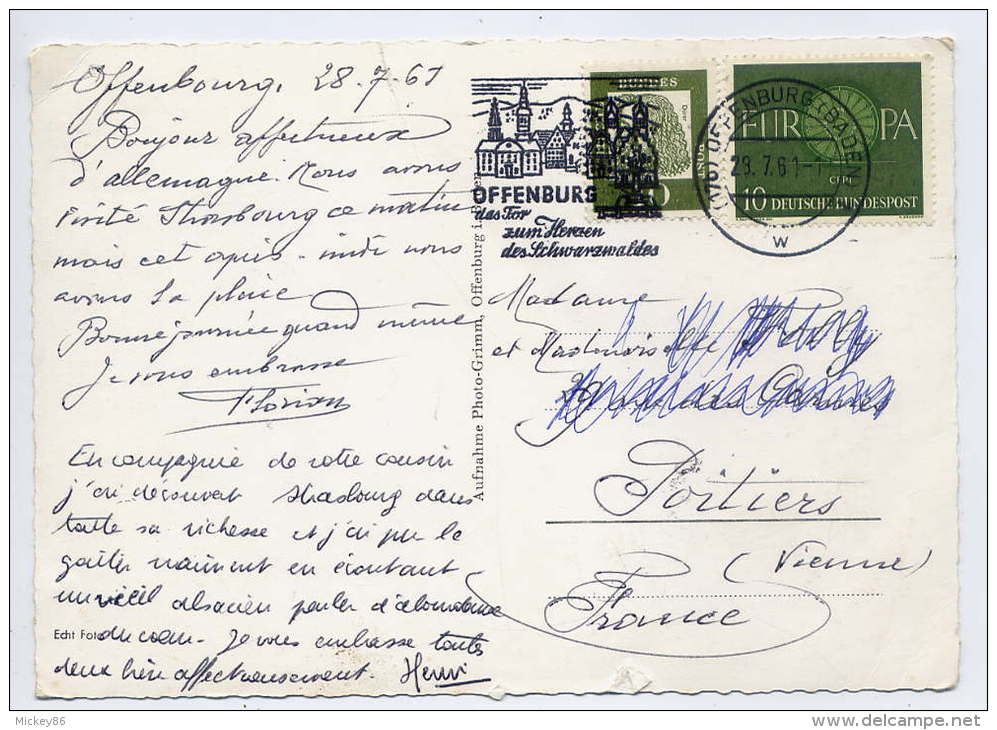 Offenbourg, 28.7.61
Bonjour affectueux
d'allemagne. Nous avons
visité Strasbourg ce matin
mais cet après-midi nous
avons la pluie
Bonne journée quand même
Je vous embrasse
Florian
En compagnie de votre cousin
j'ai découvert Strasbourg dans
toute sa richesse et j'ai pu le
goûter vraiment en écoutant
un vieil alsacien parler d'abondance
du cœur. Je vous embrasse toutes
deux bien affectueusement. Henri
Echt Foto
Aufnahme Photo-Grimm, Offenburg i.
OFFENBURG
das Tor
zum Herzen
des Schwarzwaldes
BUNDES
Dürer
(17b) OFFENBURG (BADEN)
28.7.61-1
w
EUROPA
CEPT
10 DEUTSCHE BUNDESPOST
Madame
et Mademoiselle
Poitiers
(Vienne)
France
Mickey86
delcampe.net